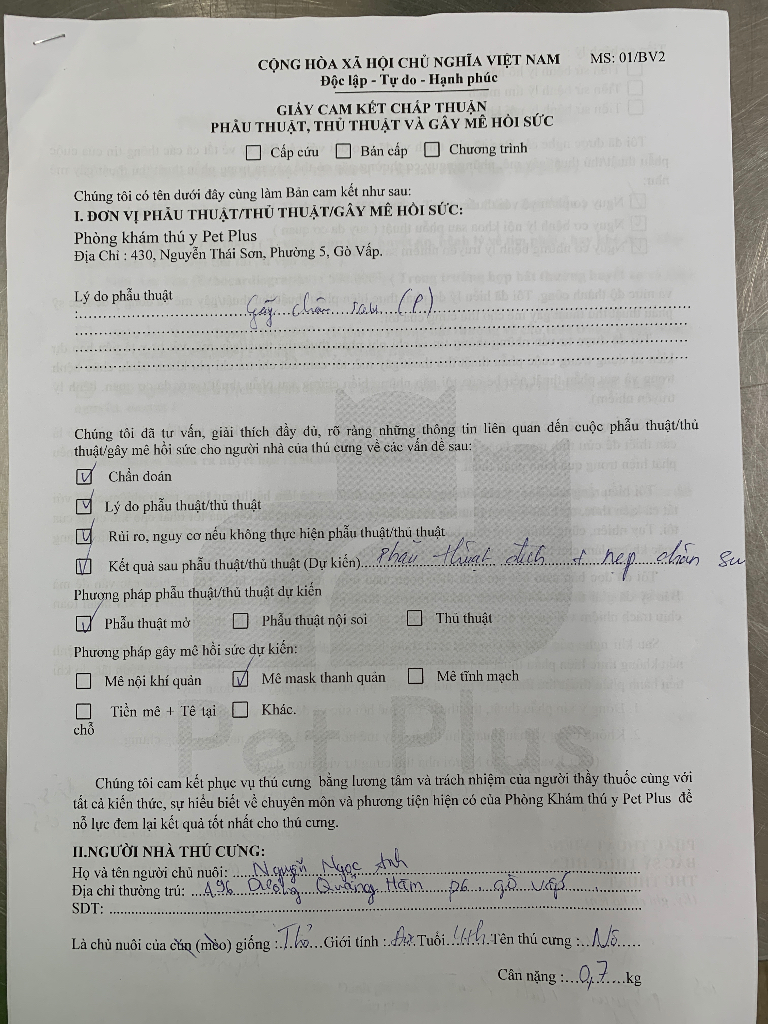 CỘNG HÒA XÃ HỘI CHỦ NGHĨA VIỆT NAM MS: 01/BV2
Độc lập - Tự do - Hạnh phúc
GIẤY CAM KẾT CHẤP THUẬN
PHẪU THUẬT, THỦ THUẬT VÀ GÂY MÊ HỒI SỨC
Cấp cứu Bán cấp Chương trình
Chúng tôi có tên dưới đây cùng làm Bản cam kết như sau:
I. ĐƠN VỊ PHẪU THUẬT/THỦ THUẬT/GÂY MÊ HỒI SỨC:
Phòng khám thú y Pet Plus
Địa Chỉ : 430, Nguyễn Thái Sơn, Phường 5, Gò Vấp.
Lý do phẫu thuật
: Gãy chân sau (P)
Chúng tôi đã tư vấn, giải thích đầy đủ, rõ ràng những thông tin liên quan đến cuộc phẫu thuật/thủ
thuật/gây mê hồi sức cho người nhà của thú cưng về các vấn đề sau:
Chẩn đoán
Lý do phẫu thuật/thủ thuật
Rủi ro, nguy cơ nếu không thực hiện phẫu thuật/thủ thuật
Kết quả sau phẫu thuật/thủ thuật (Dự kiến) Phẫu thuật đinh + nẹp chân sau
Phương pháp phẫu thuật/thủ thuật dự kiến
Phẫu thuật mở Phẫu thuật nội soi Thủ thuật
Phương pháp gây mê hồi sức dự kiến:
Mê nội khí quản Mê mask thanh quản Mê tĩnh mạch
Tiền mê + Tê tại Khác.
chỗ
Pet Plus
Chúng tôi cam kết phục vụ thú cưng bằng lương tâm và trách nhiệm của người thầy thuốc cùng với
tất cả kiến thức, sự hiểu biết về chuyên môn và phương tiện hiện có của Phòng Khám thú y Pet Plus để
nỗ lực đem lại kết quả tốt nhất cho thú cưng.
II.NGƯỜI NHÀ THÚ CƯNG:
Họ và tên người chủ nuôi: Nguyễn Ngọc Anh
Địa chỉ thường trú: A96 Dương Quảng Hàm p6, gò vấp
SDT:
Là chủ nuôi của chún (mèo) giống : Thỏ Giới tính : Đực Tuổi Tên thú cưng : Nô
Cân nặng : 0,7 kg